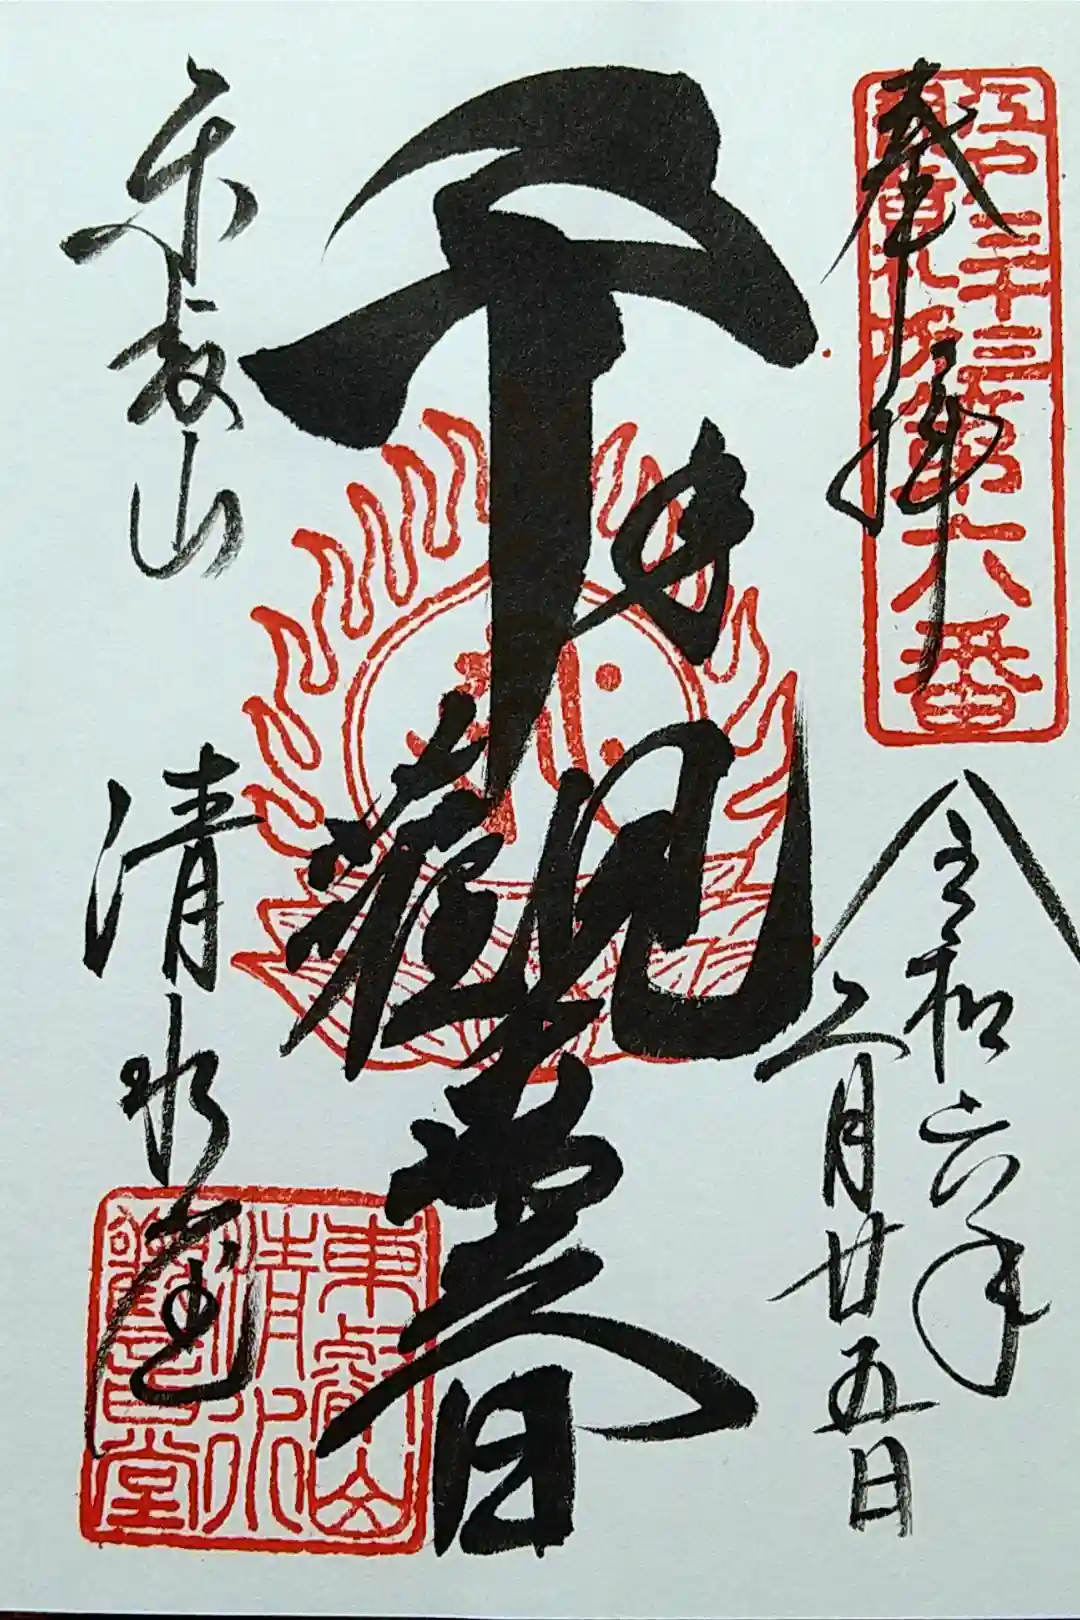 奉拝
江戸三十三
観音札所第六番
令和六年
二月廿五日
千手
観世音
東叡山
清水堂
東叡山
清水
観音堂